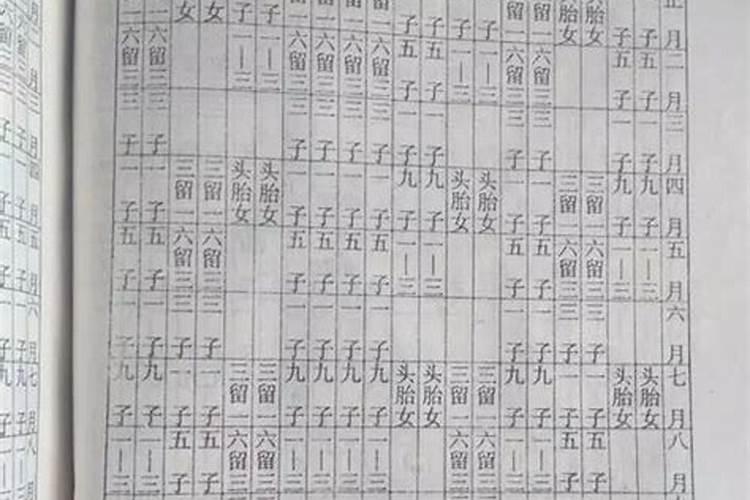 正月二月三月四月五月六月七月八月
子五子一子九子一—三头胎女
子五子一子九子一—三头胎女
胎女三留一六留三三子一子五子
胎女三留一六留三三子一子五子
留一六留三三子一子五子一子九子一—三
留一六留三三子一子五子一子九子一—三
子一—三头胎女三留一六留三
子一—三头胎女三留一六留三
子五子一子九子一—三头胎女
子五子一子九子一—三头胎女
一六留三三子一子五子一子九子一—三
一六留三三子一子五子一子九子一—三
一六留三三子一子五子一子九子一—三
一六留三三子一子五子一子九子一—三
子一—三头胎女三留一六留三
子一—三头胎女三留一六留三
女三留一六留三三子一子五子
女三留一六留三三子一子五子
一六留三三子一子五子一子九子一—三
一六留三三子一子五子一子九子一—三